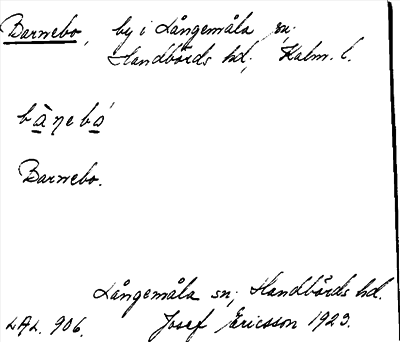 Barnebo, by i Långemåla sn.
Handbörds hd, Kalm. l.
bànebó
Barnebo.
Långemåla sn, Handbörds hd.
ULA. 906. Josef Ericsson 1923.